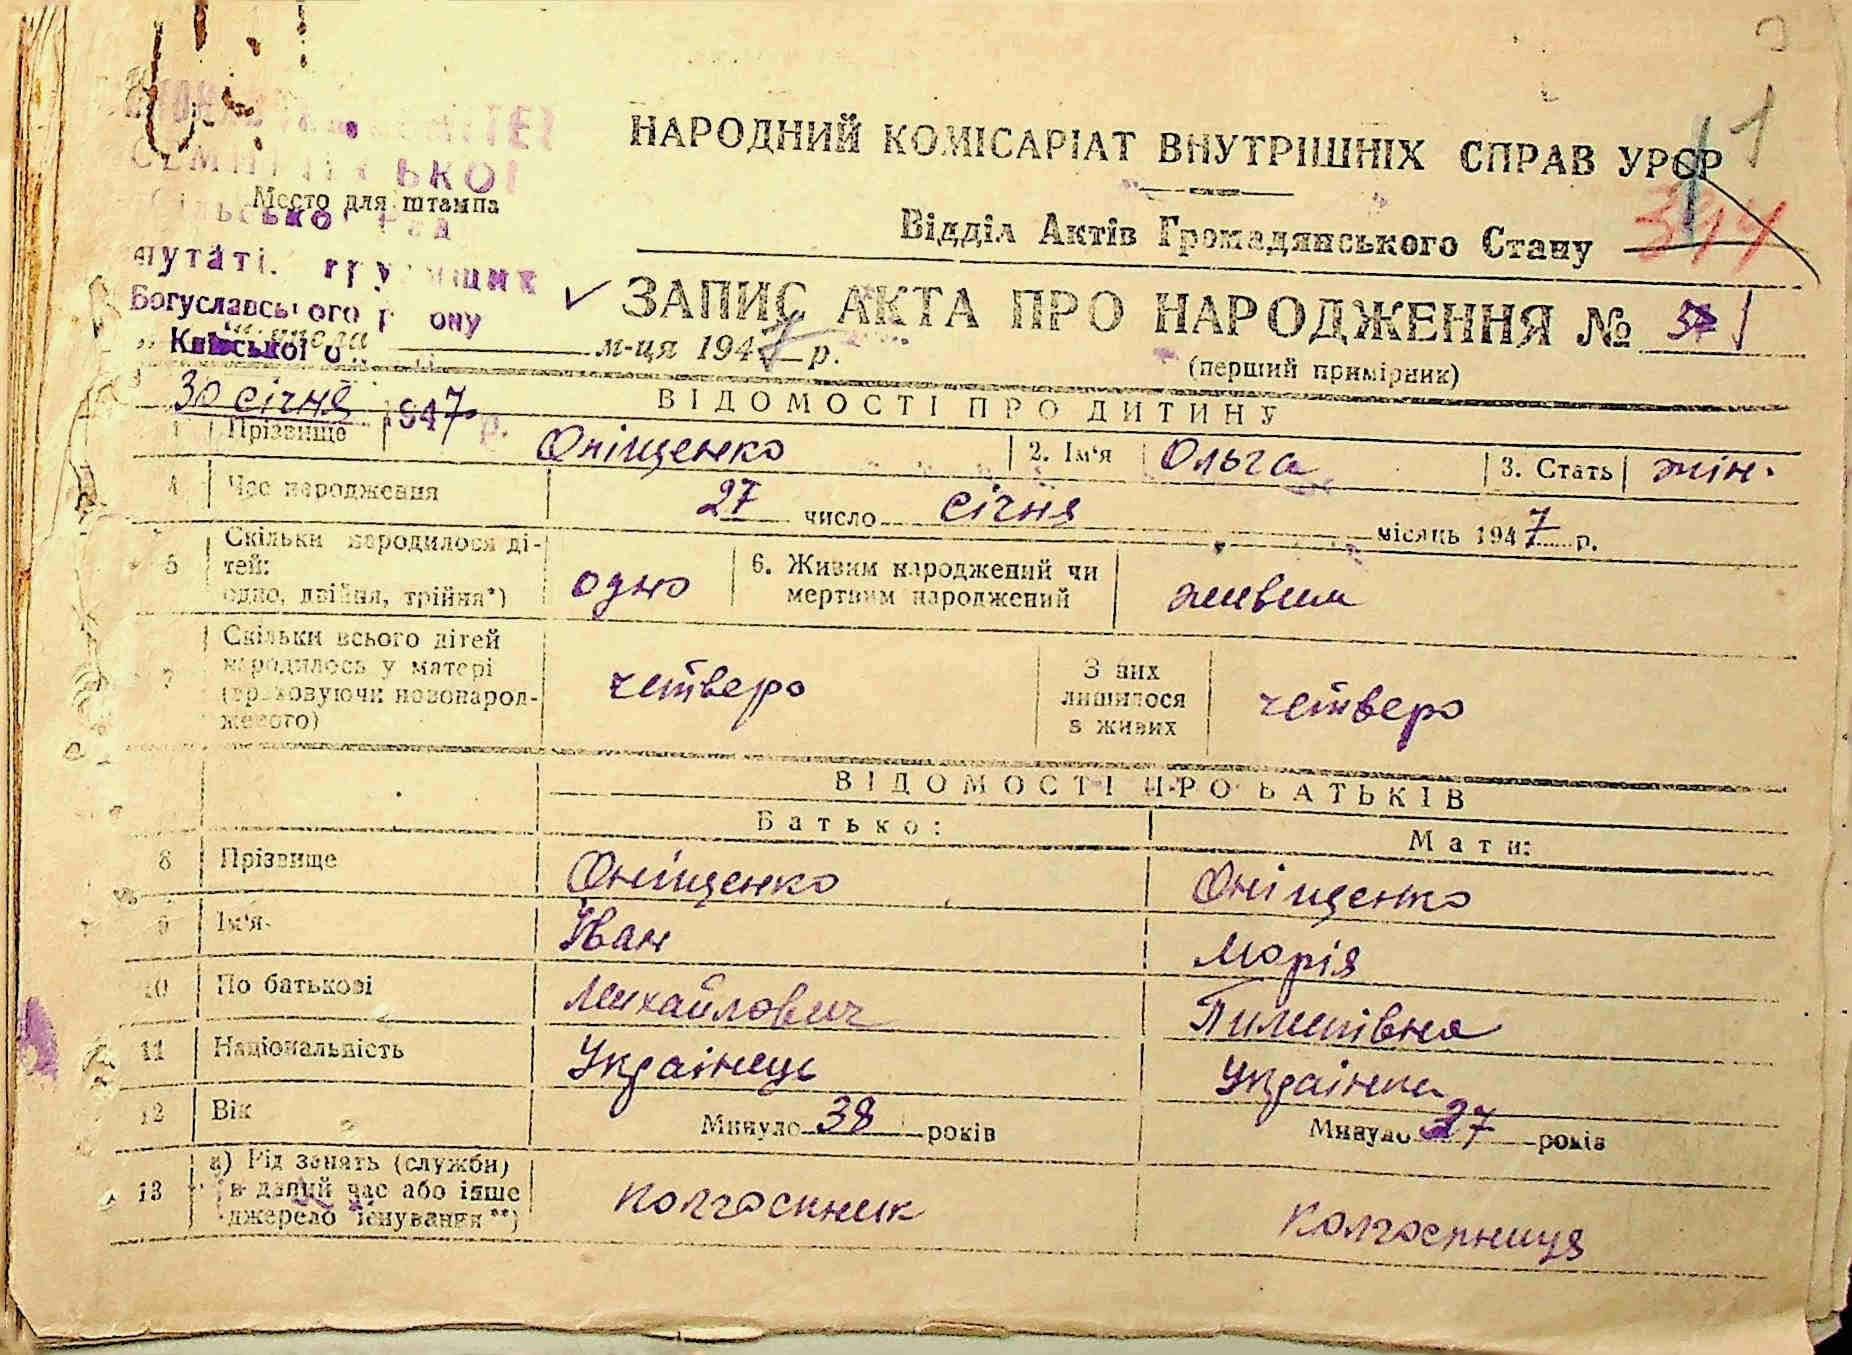 НАРОДНИЙ КОМІСАРІАТ ВНУТРІШНІХ СПРАВ УРСР
1
Место для штампа
344
Відділ Актів Громадянського Стану
Богуславського району
Київської
ЗАПИС АКТА ПРО НАРОДЖЕННЯ № 1
м-ця 1947 р.
(перший примірник)
30 січня 1947 р.
ВІДОМОСТІ ПРО ДИТИНУ
1 Прізвище Оніщенко 2. Ім'я Ольга 3. Стать жін.
4 Час народження 27 число січня місяць 1947 р.
5 Скільки народилося дітей: одно, двійня, трійня*) одно 6. Живим народжений чи мертвим народжений живим
7 Скільки всього дітей народилось у матері (враховуючи новонародженого) четверо З них лишилося в живих четверо
ВІДОМОСТІ ПРО БАТЬКІВ
Батько: Мати:
8 Прізвище Оніщенко Оніщенко
9 Ім'я Іван Марія
10 По батькові Михайлович Пилипівна
11 Національність Українець Українка
12 Вік Минуло 38 років Минуло 37 років
13 а) Рід занять (служби) в даний час або інше джерело існування **) колгоспник колгоспниця